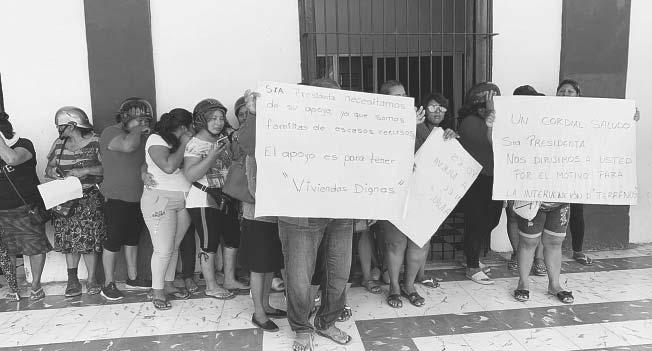 SRA Presidenta necesitamos
de su apoyo, ya que somos
familias de escasos recursos
El apoyo es para tener
"Viviendas Dignas"
UN CORDIAL SALUDO
SRA PRESIDENTA
NOS DIRIJIMOS A USTED
POR EL MOTIVO PARA
LA INTERVENCIÓN D' TERRENOS